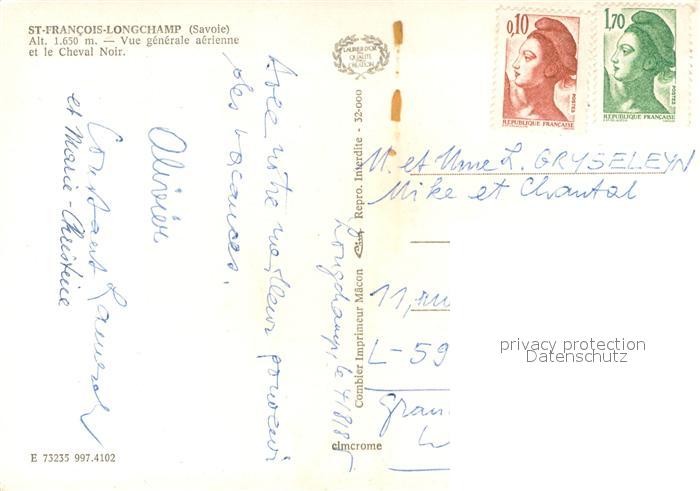 ST-FRANÇOIS-LONGCHAMP (Savoie)
Alt. 1.650 m. — Vue générale aérienne
et le Cheval Noir.
LAURIER D'OR
QUALITÉ
CRÉATION
0,10
POSTES
REPUBLIQUE FRANÇAISE
1,70
POSTES
REPUBLIQUE FRANÇAISE
Avec notre meilleur souvenir
des vacances.
Olivier
Constant
et Marie-Christine
Longchamp, le 4/8/85
Combier Imprimeur Mâcon Cim Repro. Interdite - 32-000
M. et Mme L. GRYSELEYN
Mike et Chantal
11, rue
L-59
privacy protection
Datenschutz
cimcrome
E 73235 997.4102